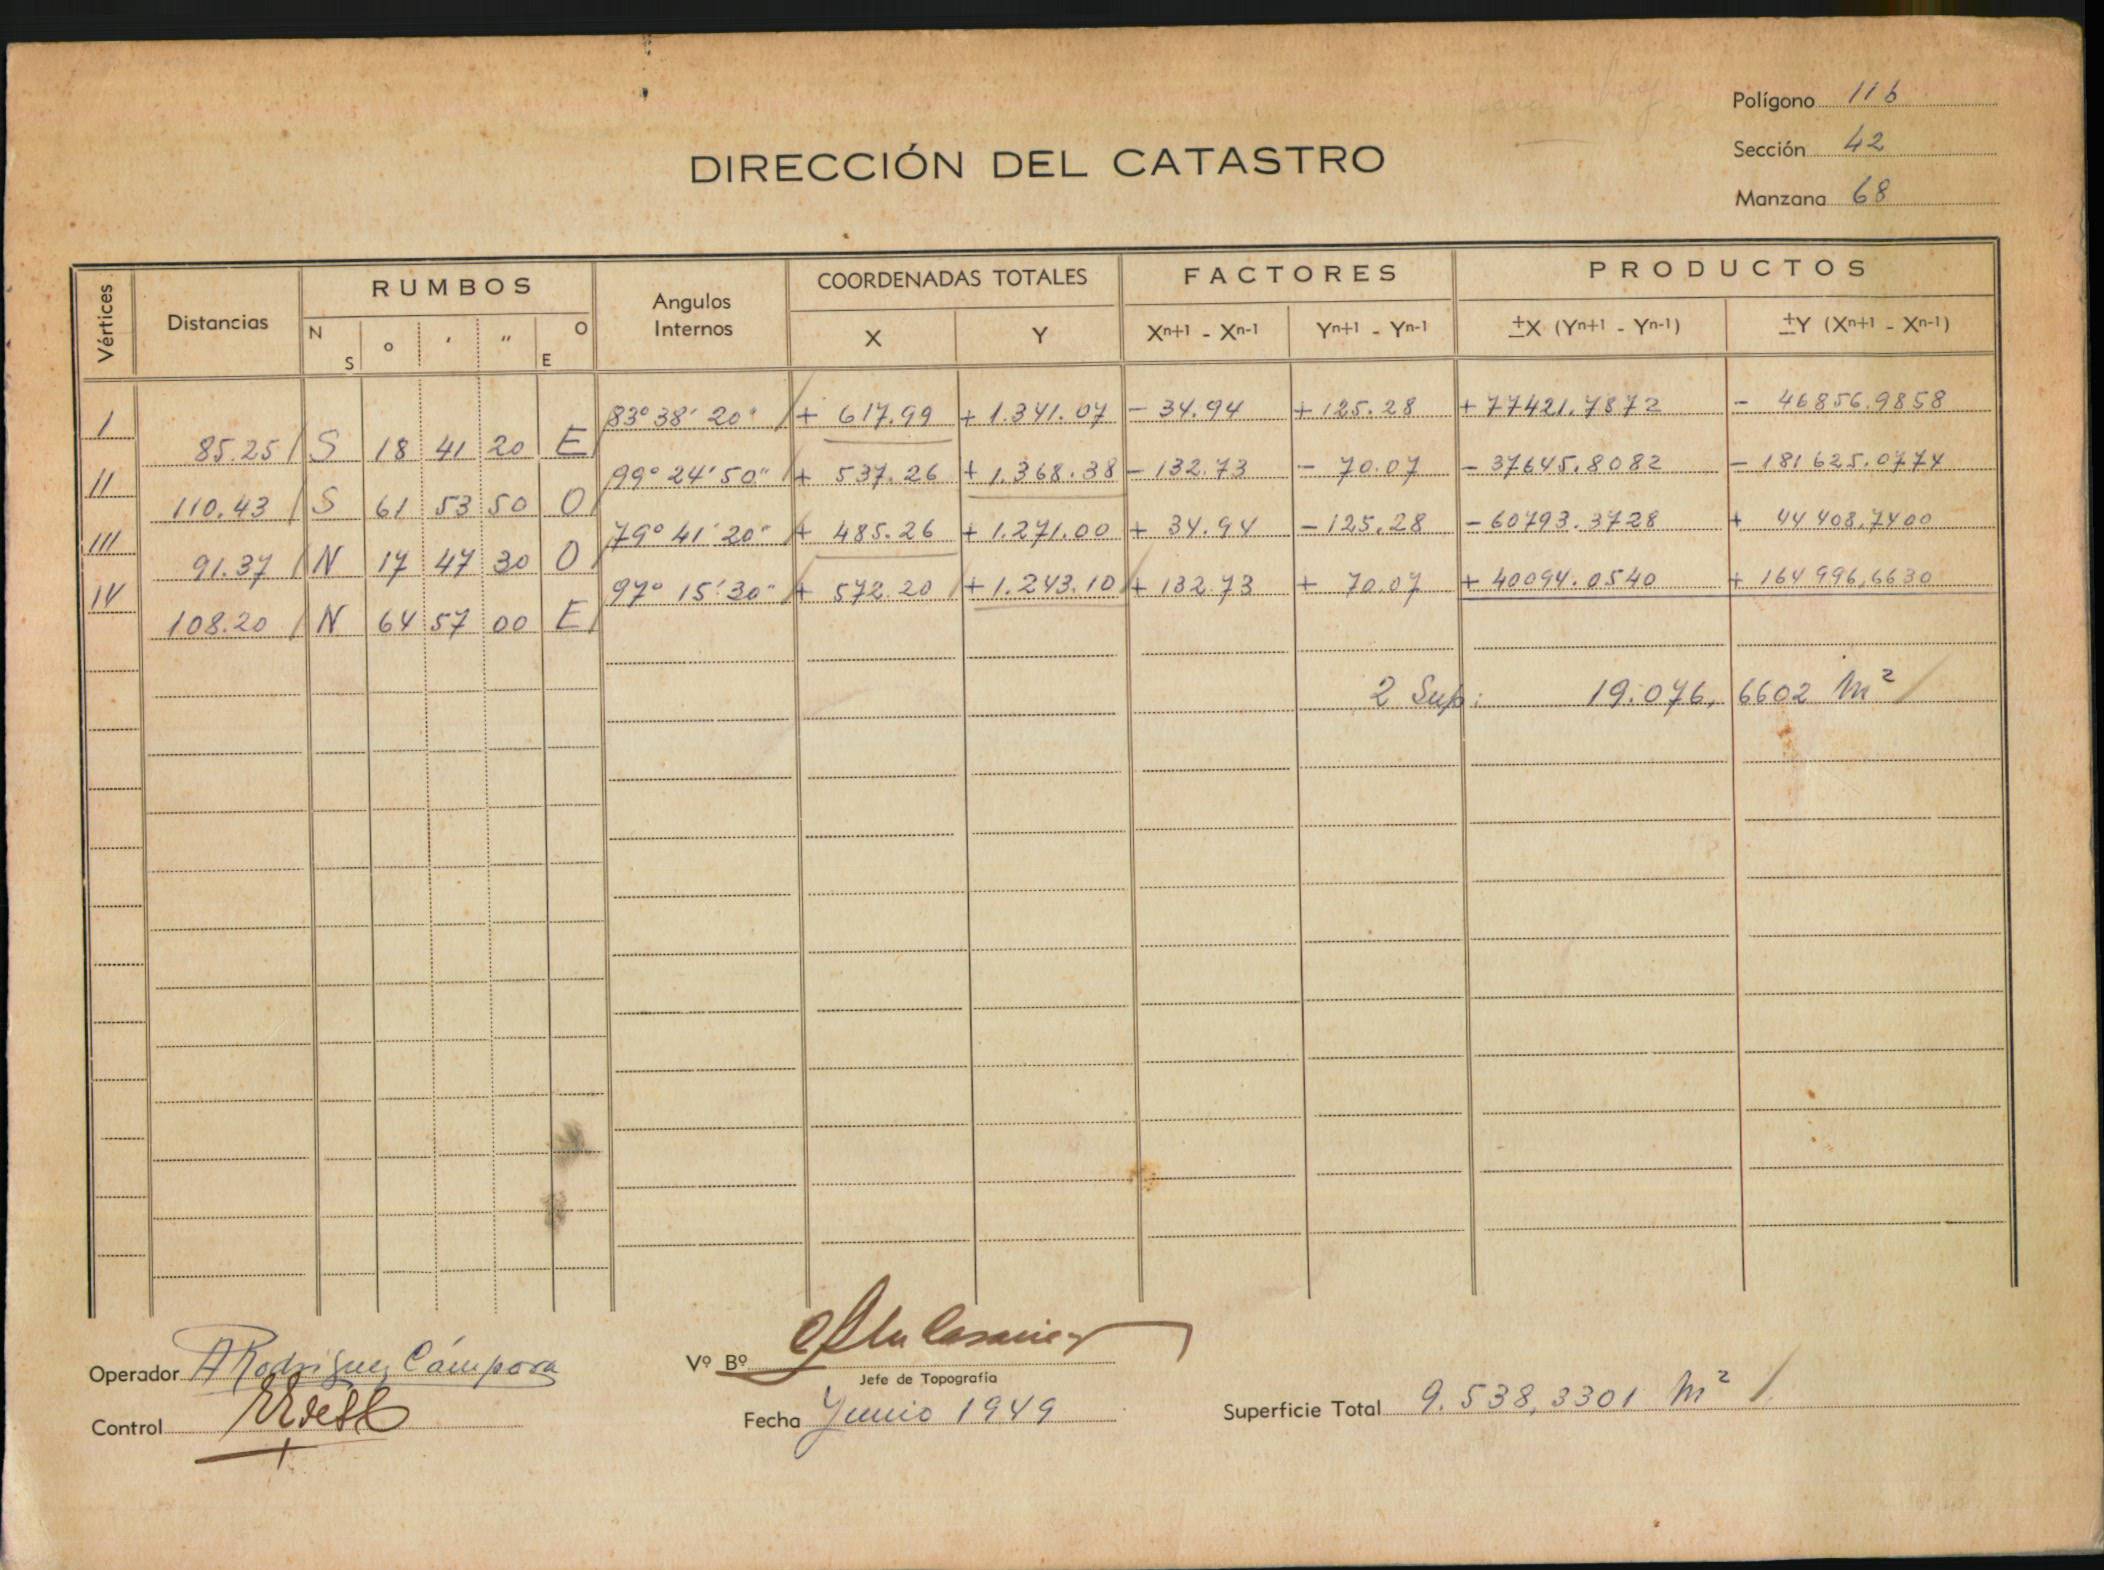 Polígono 116
Sección 42
Manzana 68
DIRECCIÓN DEL CATASTRO
Vértices Distancias RUMBOS Angulos Internos COORDENADAS TOTALES FACTORES PRODUCTOS
N S o ' " O E X Y Xn+1 - Xn-1 Yn+1 - Yn-1 ±X (Yn+1 - Yn-1) ±Y (Xn+1 - Xn-1)
I 83° 38' 20" + 617.99 + 1.341.07 - 34.94 + 125.28 + 77421.7872 - 46856.9858
85.25 S 18 41 20 E
II 99° 24' 50" + 537.26 + 1.368.38 - 132.73 - 70.07 - 37645.8082 - 181625.0774
110.43 S 61 53 50 O
III 79° 41' 20" + 485.26 + 1.271.00 + 34.94 - 125.28 - 60793.3728 + 44408,7400
91.37 N 17 47 30 O
IV 97° 15' 30" + 572.20 + 1.243.10 + 132.73 + 70.07 + 40094.0540 + 164996,6630
108.20 N 64 57 00 E
2 Sup: 19.076, 6602 m²
Operador A Rodriguez Cámpora
Vº Bº
Jefe de Topografía
Control
Fecha Junio 1949
Superficie Total 9.538,3301 m²